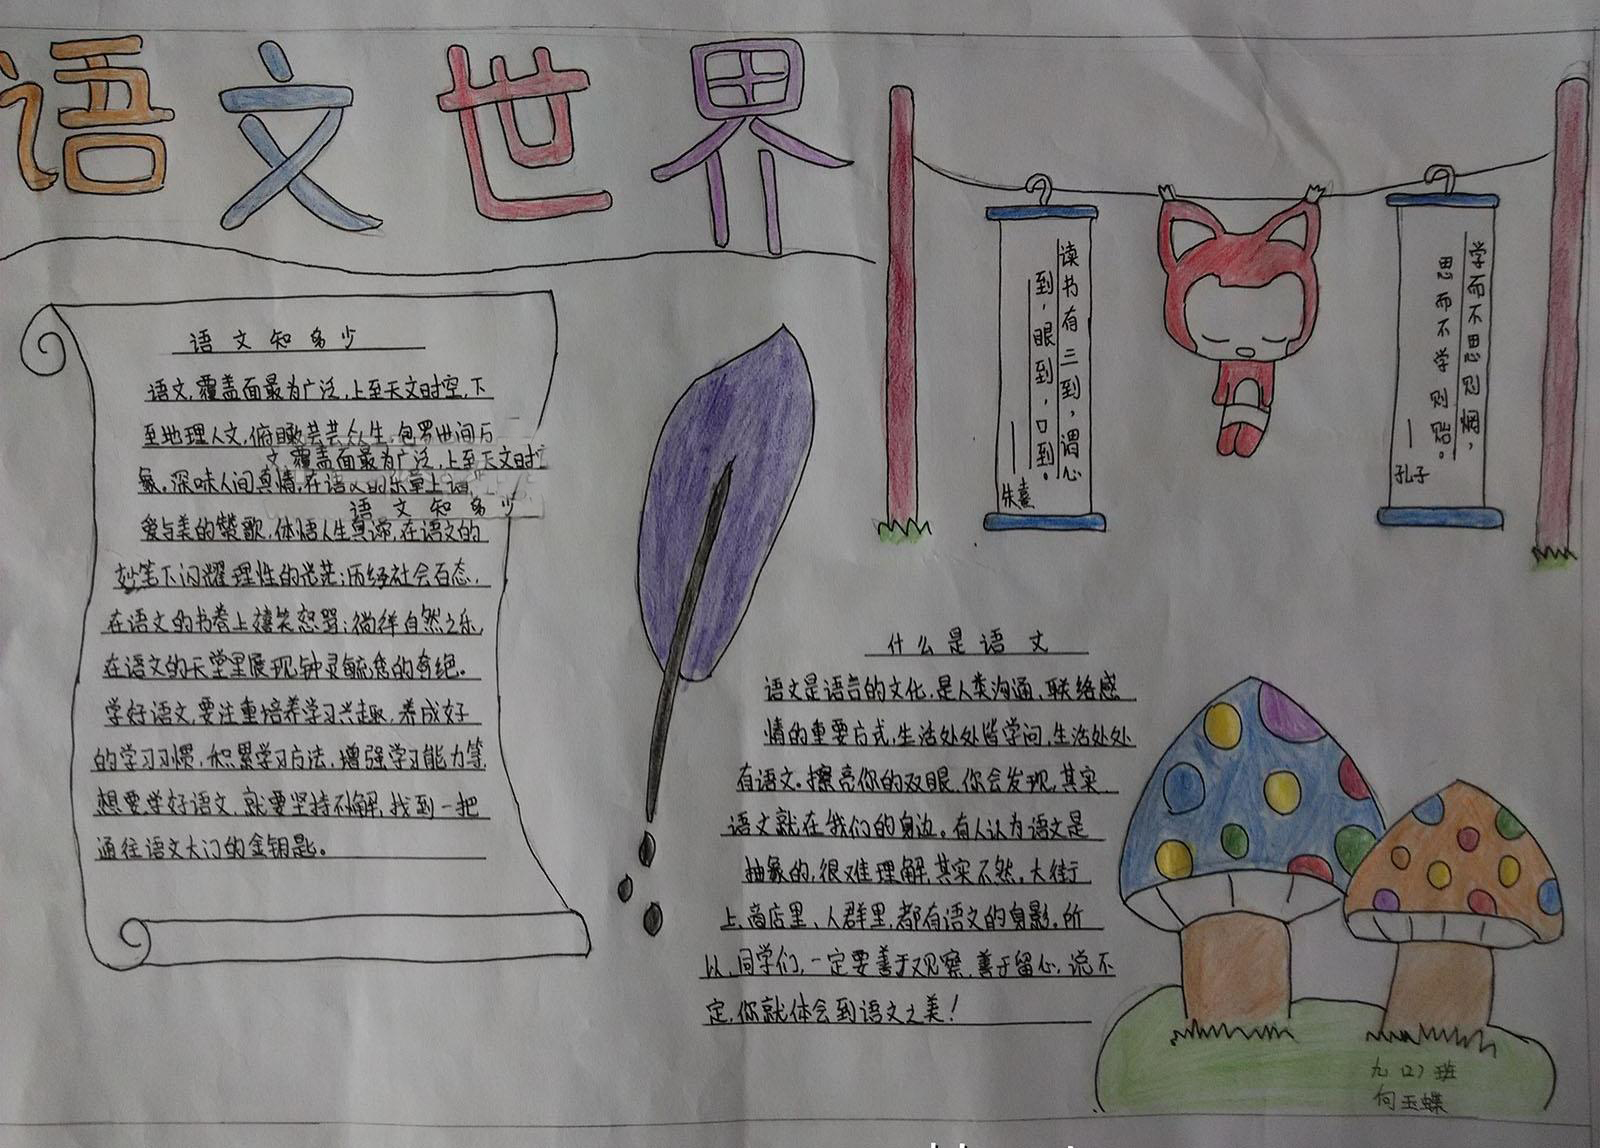 语文世界
语文知多少
语文,覆盖面最为广泛,上至天文时空,下
至地理人文,俯瞰芸芸众生,包罗世间万
文,覆盖面最为广泛,上至天文时
象。深味人间真情,在语文的乐章上谱
语文知多少
爱与美的赞歌,体悟人生真谛,在语文的
妙笔下闪耀理性的光芒;历经社会百态,
在语文的书卷上嬉笑怒骂;徜徉自然之乐,
在语文的天堂里展现钟灵毓秀的奇绝。
学好语文,要注重培养学习兴趣,养成好
的学习习惯,积累学习方法,增强学习能力等
想要学好语文,就要坚持不解,找到一把
通往语文大门的金钥匙。
读书有三到,谓心
到,眼到,口到。
——朱熹
学而不思则惘,
思而不学则殆。
—孔子
什么是语文
语文是语言的文化,是人类沟通,联络感
情的重要方式,生活处处皆学问,生活处处
有语文。擦亮你的双眼,你会发现,其实
语文就在我们的身边。有人认为语文是
抽象的,很难理解,其实不然。大街
上、商店里、人群里,都有语文的身影。所
以,同学们,一定要善于观察,善于留心,说不
定,你就体会到语文之美!
九(2)班
何玉蝶